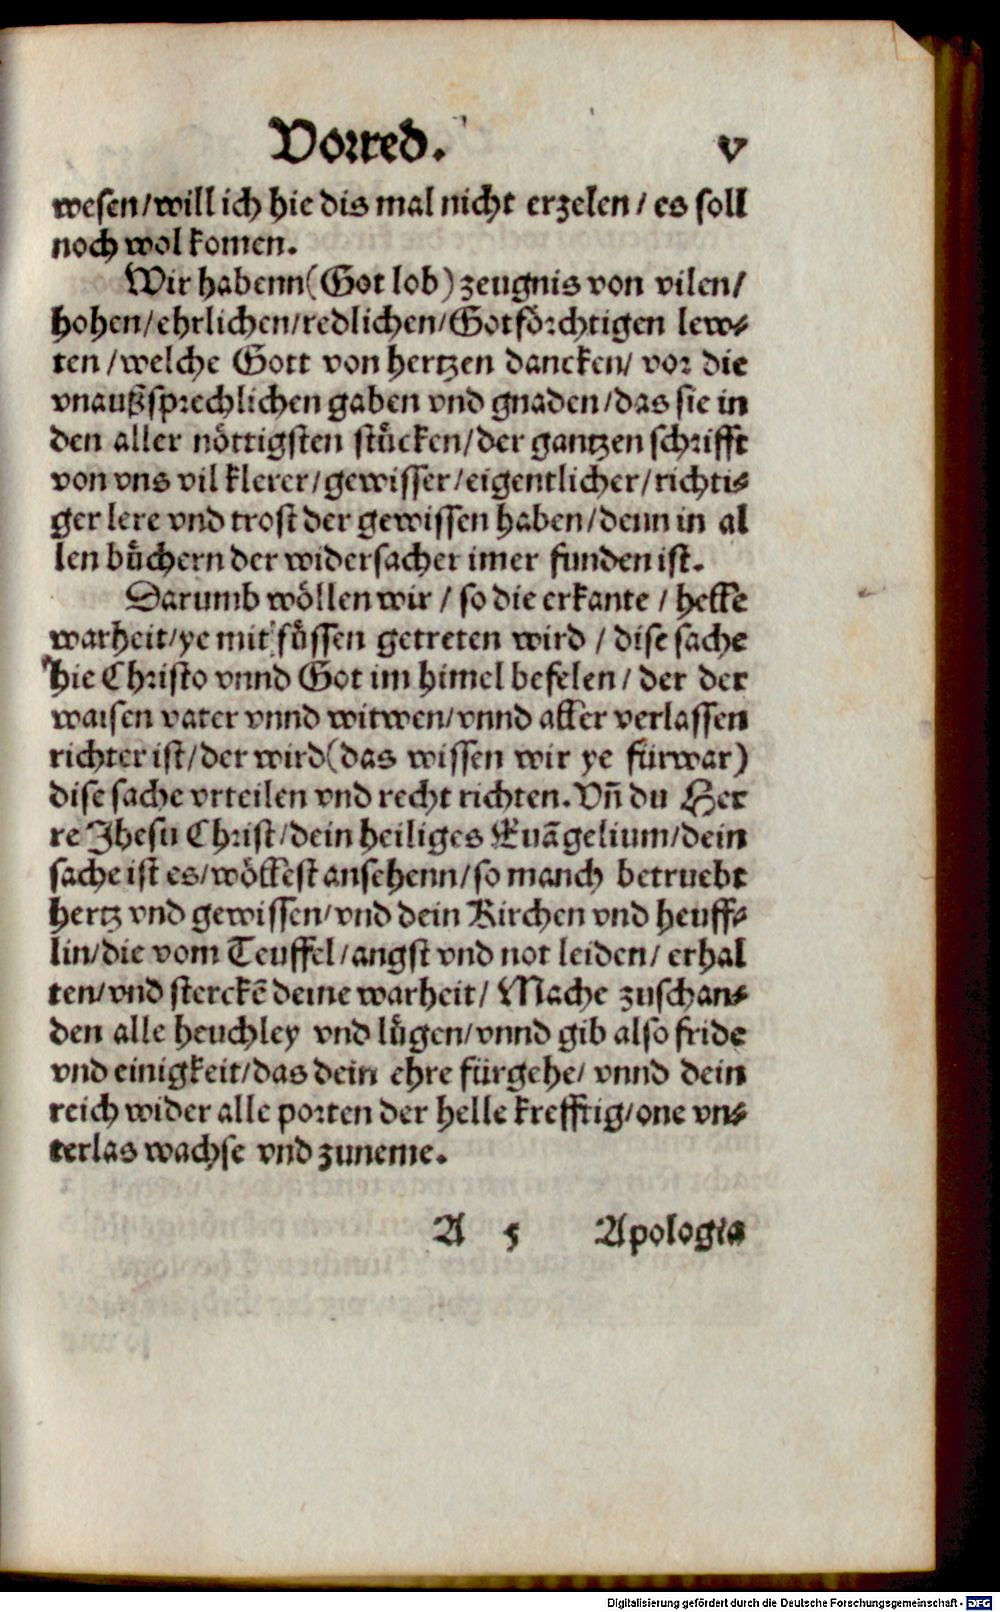 Vorred. v
wesen/will ich hie dis mal nicht erzelen/ es soll
noch wol komen.
Wir habenn (Got lob) zeugnis von vilen/
hohen/ehrlichen/redlichen/Gotförchtigen lew⸗
ten/welche Gott von hertzen dancken/ vor die
vnaußsprechlichen gaben vnd gnaden/das sie in
den aller nöttigsten stücken/der gantzen schrifft
von vns vil klerer/gewisser/eigentlicher/richti⸗
ger lere vnd trost der gewissen haben/denn in al
len büchern der widersacher imer funden ist.
Darumb wöllen wir / so die erkante / helle
warheit/ye mit füssen getreten wird / dise sache
hie Christo vnnd Got im himel befelen/ der der
waisen vater vnnd witwen/vnnd aller verlassen
richter ist/der wird (das wissen wir ye fürwar)
dise sache vrteilen vnd recht richten. Vñ du Her
re Jhesu Christ/dein heiliges Euãgelium/dein
sache ist es/wöllest ansehenn/so manch betruebt
hertz vnd gewissen/vnd dein Kirchen vnd heuff⸗
lin/die vom Teuffel/angst vnd not leiden/ erhal
ten/vnd sterckẽ deine warheit/ Mache zuschan⸗
den alle heuchley vnd lügen/vnnd gib also fride
vnd einigkeit/das dein ehre fürgehe/ vnnd dein
reich wider alle porten der helle krefftig/one vn⸗
terlas wachse vnd zuneme.
A 5 Apologia
Digitalisierung gefördert durch die Deutsche Forschungsgemeinschaft - DFG